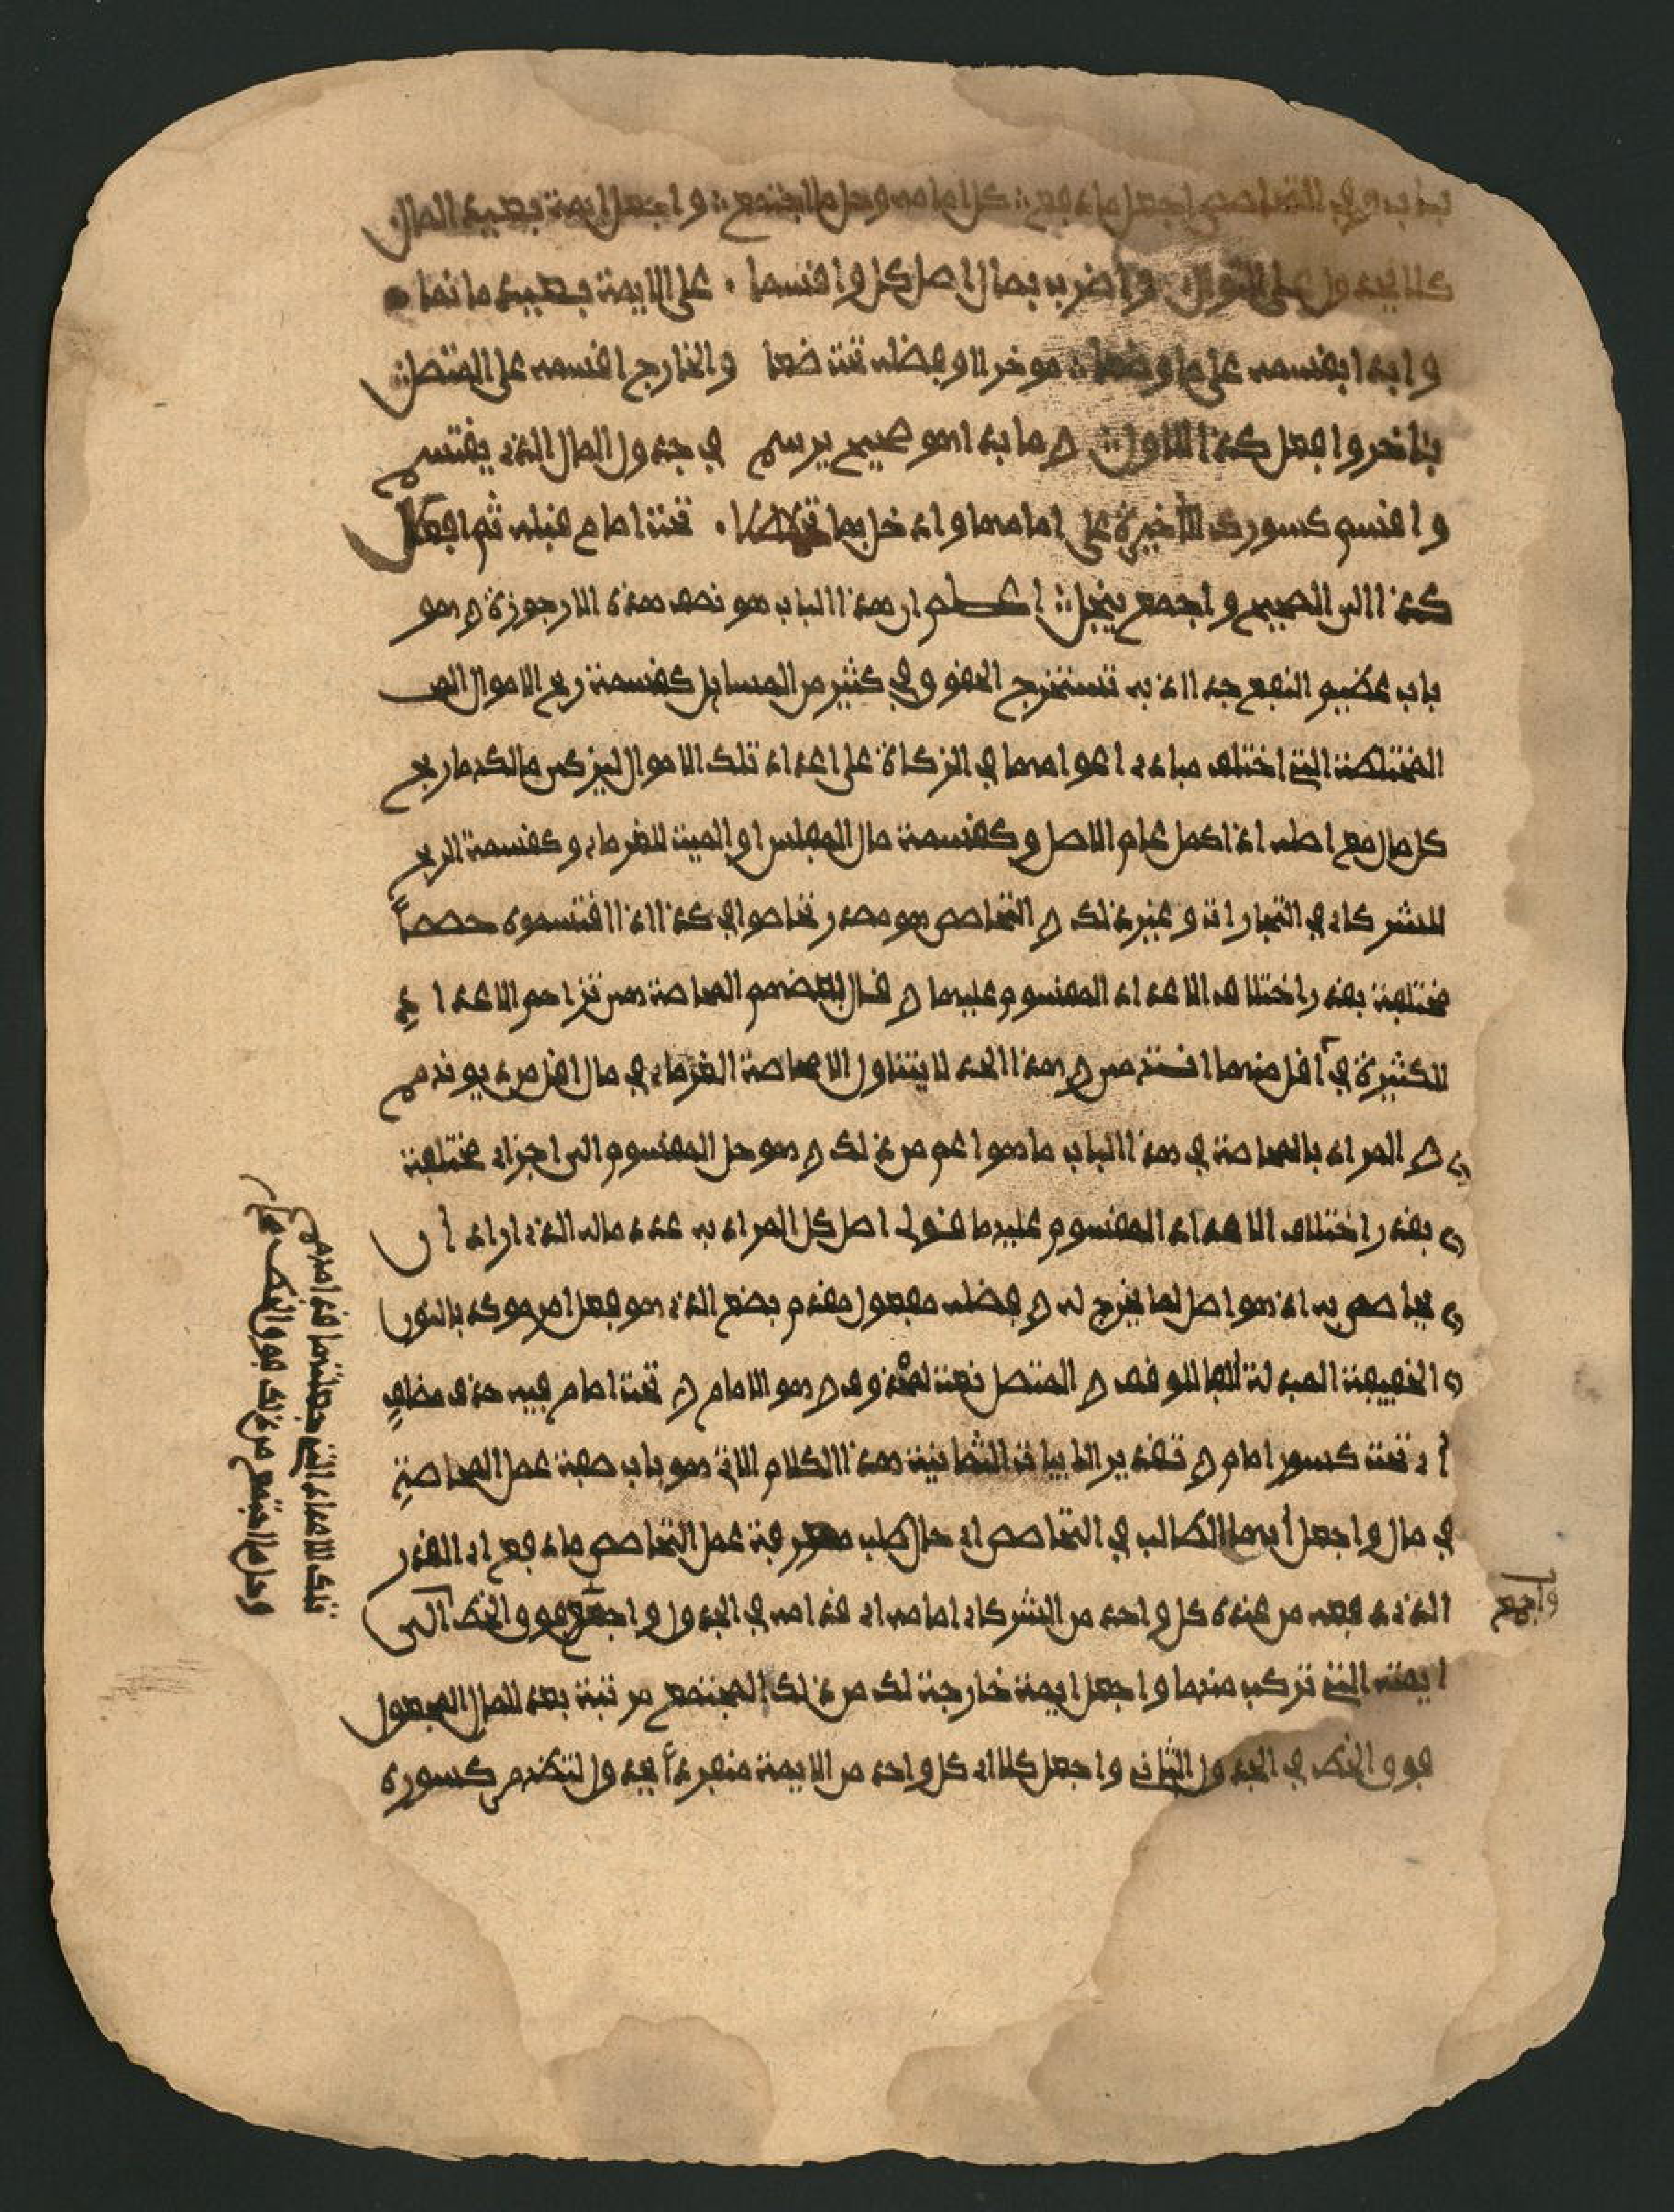 باب وفي التحاصص اجعل ما دفع ∴ كل امامه وحل ما اجتمع ∴ واجعل ايمة بعيد المال
كلا بجدول على التوال واضرب بمال اصل كل واقسما . على الايمة بعيد ما نما
وابدا بقسمه على ما وضعا ∴ موخرا اوفضله تحت ضعا والخارج اقسمه على المتصل ∴
بئاخر وافعل كذا الاول ∴ ن ما بدا هو صحيح يرسم في جدول المال الذي يقتسم
واقسم كسورك الأخيرة على امامها واد خل بها . تحت امام قبله ثم افعل
كذا الى الصحيح واجمع ينجل ∴ اعلم ان هذا الباب هو نصف هذه الارجوزة ن هو
باب عظيم النفع جدا اذ به تستخرج الحقوق في كثير من المسايل كقسمة ربح الاموال
المختلطة التي اختلف مبادي اعوامها في الزكاة على اعداد تلك الاموال ليزكي مالكه ما ربح
كل مال مع اصله اذا كمل عام الاصل وكقسمة مال المفلس او الميت للغرماء وكقسمة الربح
للشركاء في التجارات وغير ذلك ن التحاصص هو مصدر تحاصوا في كذا اذا اقتسموه حصصا
مختلفة بقدر اختلاف الاعداد المقسوم عليها ن قال بعضهم المحاصة هي تزاحم الاعداد
الكثيرة في أقل منها اقتدمى ن هذا الحد لا يتناول الا محاصة الغرماء في مال اقل من ديونهم
ن المراد بالمحاصة في هذا الباب ما هو اعم من ذلك ن هو حل المقسوم الى اجزاء مختلفة
بقدر اختلاف الاعداد المقسوم عليها قولي اصل كل المراد به عدد ماله الذي اراد أن
يحاصص به اذ هو اصل لما يخرج له ن فضله مفعول مقدم بضع الذي هو فعل امر موكد بالنون
الخفيفة المبدلة الفا للوقف ن المتصل نعت لمحذوف ن هو الامام ن تحت امام فيه حذف مضاف
أي تحت كسور امام ن تقدير الابيات الثمانية هذا الكلام الاتي هو باب صفة عمل المحاصة
في مال واجعل أيها الطالب في التحاصص اي حال طلب معرفة عمل التحاصص ما دفع اي القدر
الذي دفعه من عنده كل واحد من الشركاء امامه اي قدامه في الجدول واجعل فوق الخط الى
ايمته التي تركب منها واجعل ايمة خارجة لك من ذلك المجتمع مرتبة بعد المال المجعول
فوق الخط في الجدول الثاني واجعل كلا اي كل واحد من الايمة منفردا بجدول لتضم كسوره
واجمع
تلك الاعداد التي جعلتها قدامهم
وحل ما اجتمع من ذلك فوق الخط